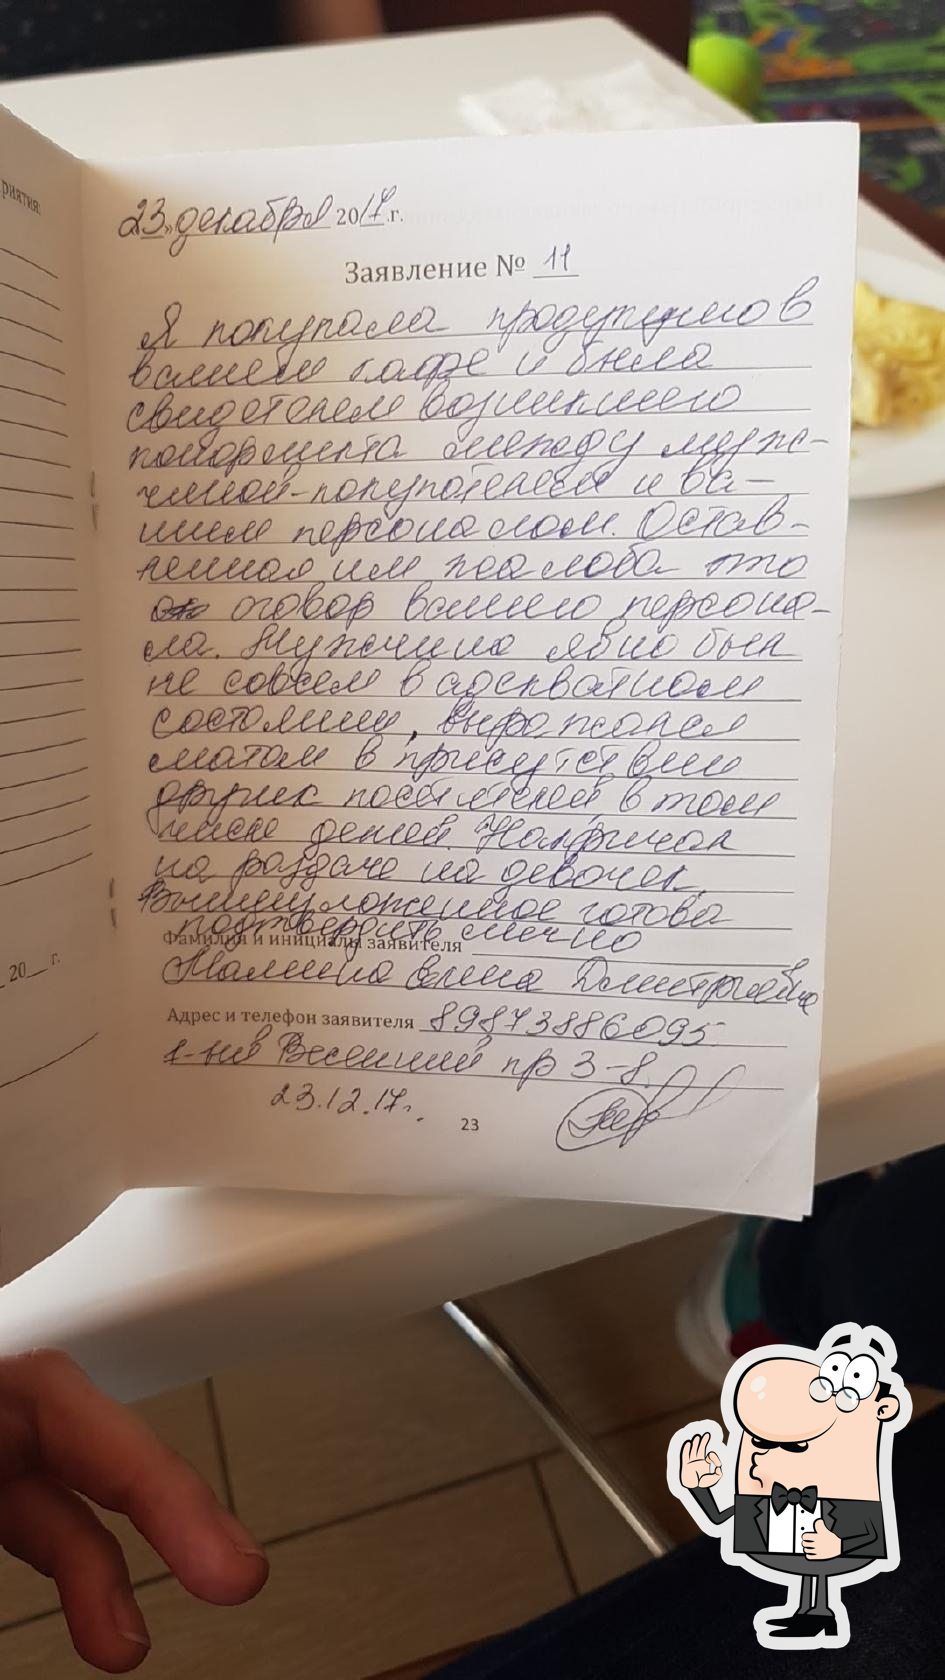 риятия:
20__ г.
«23» декабря 2017.г.
Заявление № 11
Я покупала продукцию в
вашем кафе и была
свидетелем возникшего
конфликта между муж-
чиной-покупателем и ва-
шим персоналом. Остав-
ленная им жалоба это
оговор вашего персона-
ла. Мужчина явно был
не совсем в адекватном
состоянии, выражался
матом в присутствии
других посетителей, в том
числе детей. Накричал
на раздаче на девочек.
Вышеизложенное готова
подтвердить лично
Фамилия и инициалы заявителя
Малина Елена Дмитриевна
Адрес и телефон заявителя 89873886095
1-ый Весенний пр 3-8.
23.12.17г.
23